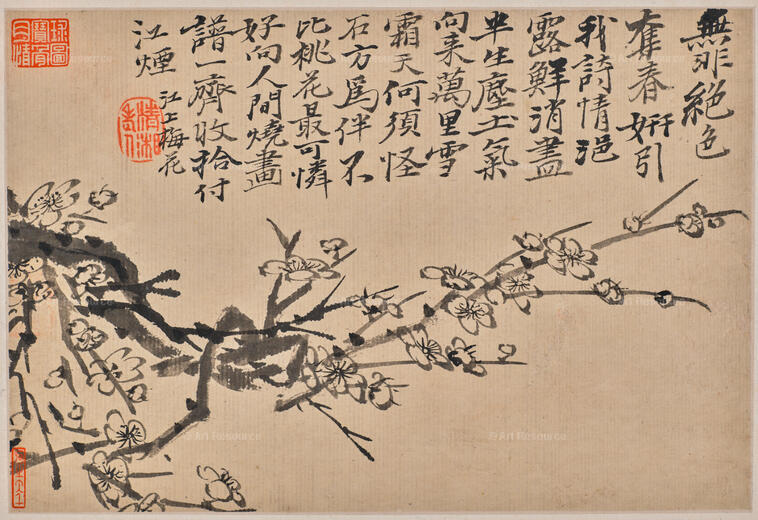 無非絕色
奪春妍引
我詩情浥
露鮮消盡
半生塵土氣
向来萬里雪
霜天何須怪
石方為伴不
比桃花最可憐
好向人間燒畫
譜一齊收拾付
江煙
江上梅花
清湘
老人
Art Resource
Art Resource
Art Resource
Art Resource